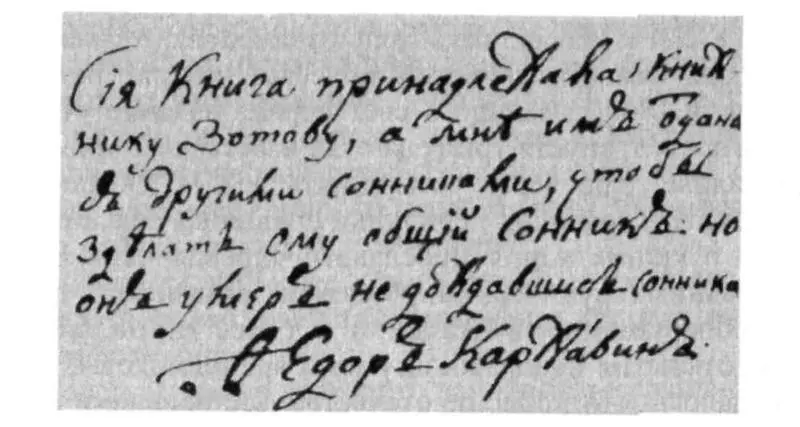 Сія Книга принадлежала книж-
нику Зотову, а мнѣ имъ ѿдана
съ другими сонниками, чтобы
здѣлать ему общій Сонникъ: но
онъ умеръ не дождавшись сонника
Ѳедоръ Каржáвинъ.